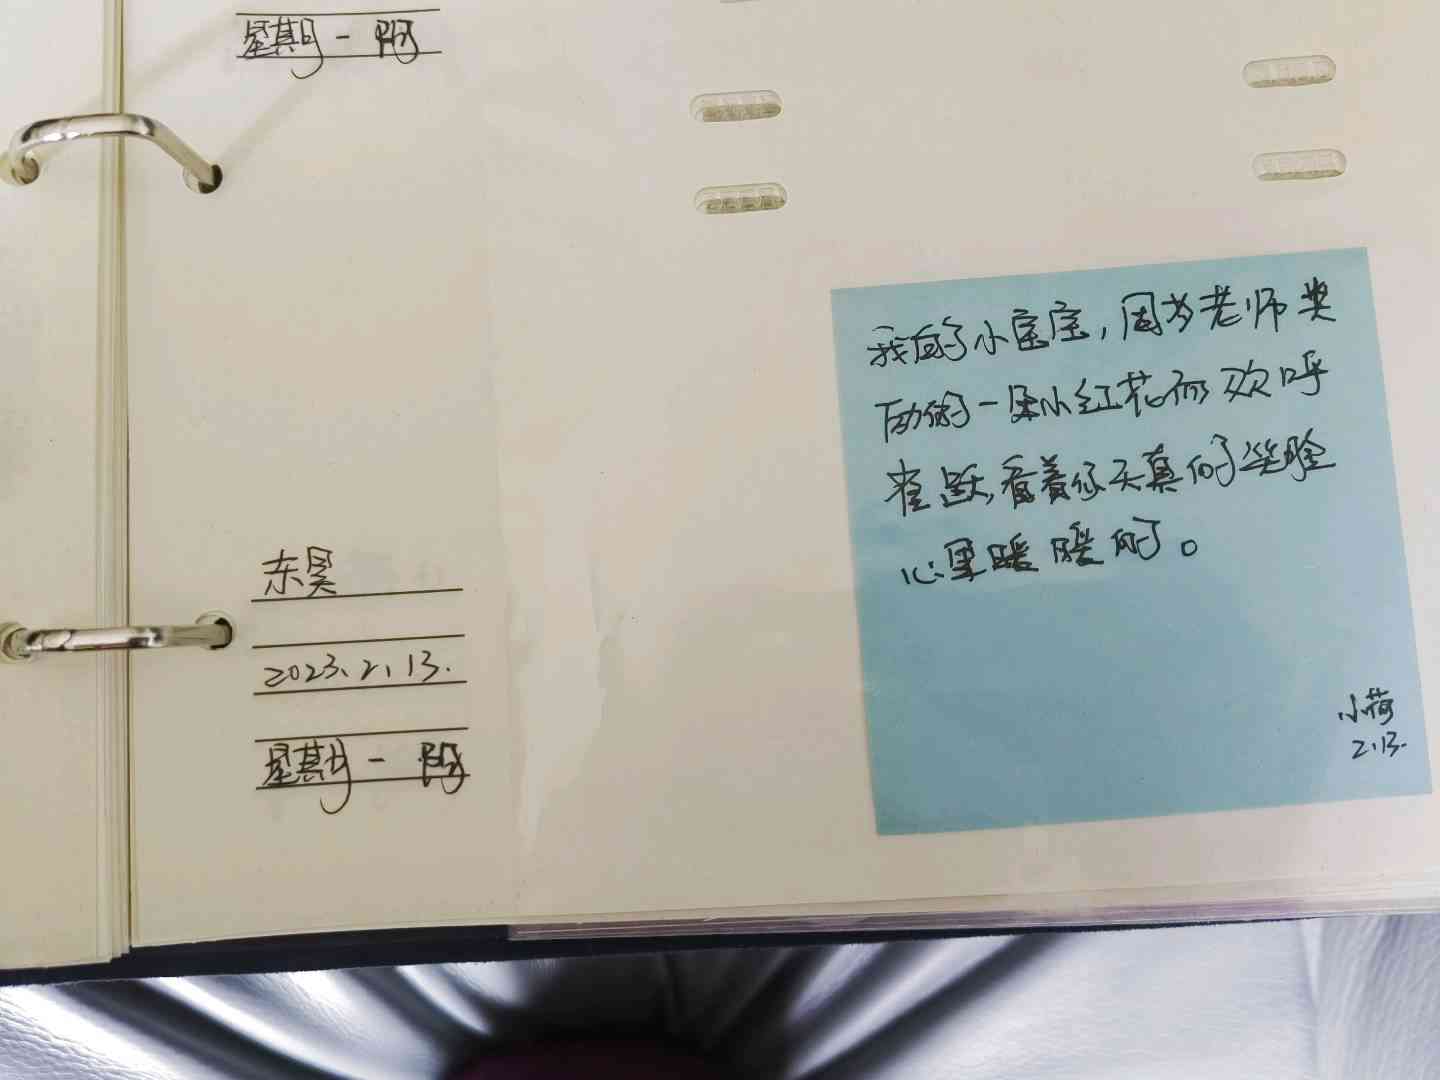 星期一 阴
东昊
2023.2.13.
星期一 阴
我的小宝宝,因为老师奖
励的一朵小红花而欢呼
雀跃,看着你天真的笑脸
心里暖暖的。
小荷
2.13.